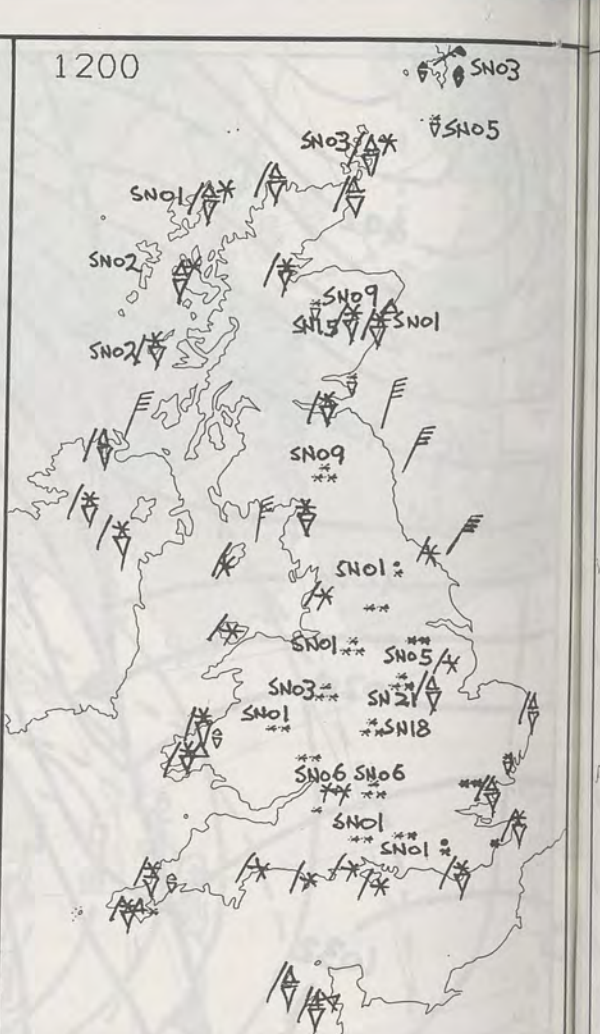 1200
SN03
SN05
SN03
SN01
SN02
SN09
SN15
SN01
SN02
SN09
SN01
SN01
SN05
SN03
SN21
SN01
SN18
SN06 SN06
SN01
SN01